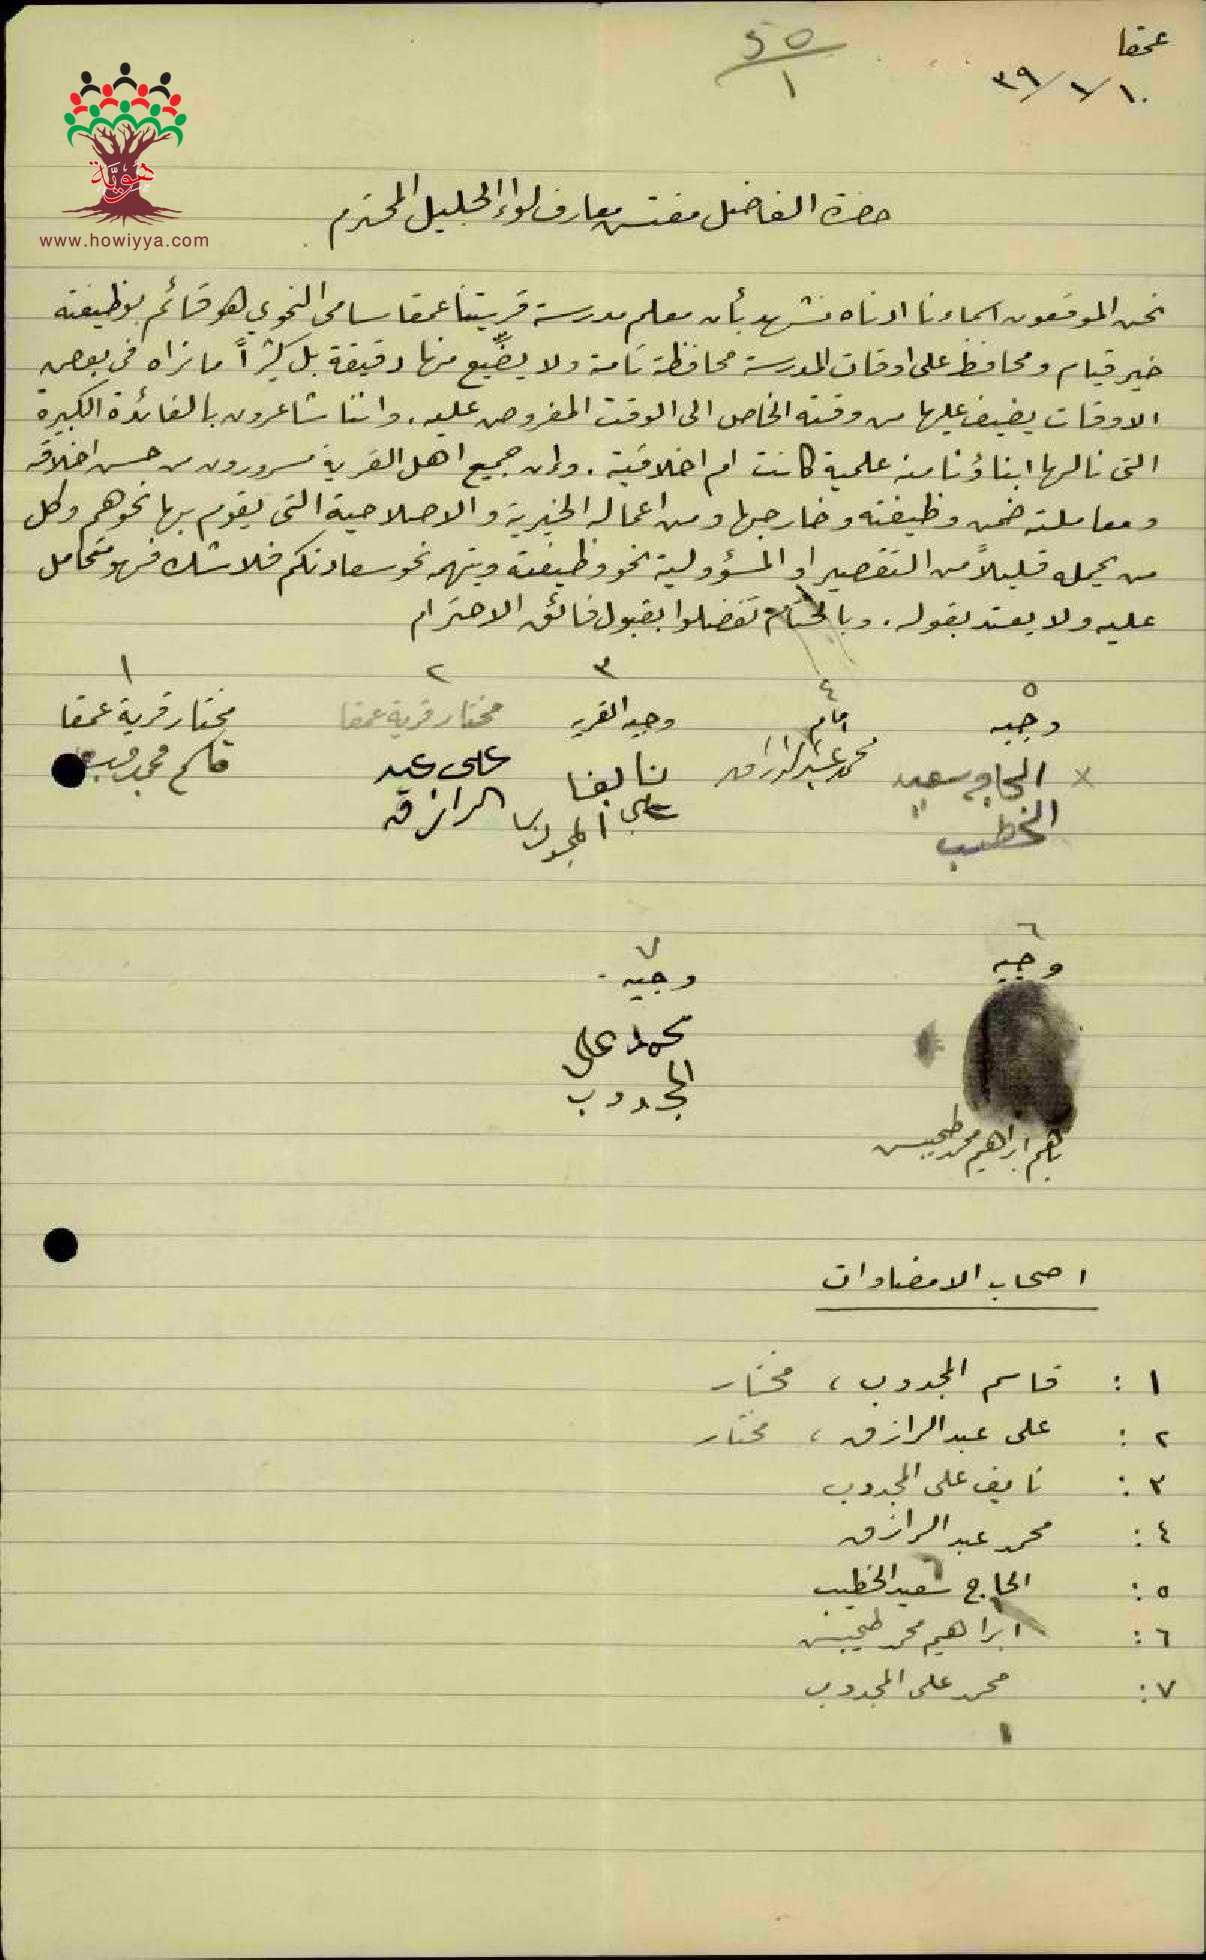 عمقا
١٠/١/٣٩
٥٥/١
هوية
www.howiyya.com
حضرة الفاضل مفتش معارف لواء الجليل المحترم
نحن الموقعون اسماءنا ادناه نشهد بأن معلم مدرسة قريتنا عمقا سامي النحوي هو قائم بوظيفته
خير قيام ومحافظ على اوقات المدرسة محافظة تامة ولا يضيّع منها دقيقة بل كثيراً ما نراه في بعض
الاوقات يضيف عليها من وقته الخاص الى الوقت المفروض عليه. واننا شاعرون بالفائدة الكبيرة
التي نالها ابناؤنا منه علمية كانت ام اخلاقية. وان جميع اهل القرية مسرورون من حسن اخلاقه
ومعاملته ضمن وظيفته وخارجها ومن اعماله الخيرية والاصلاحية التي يقوم بها نحوهم وكل
من يحمله قليلاً من التقصير او المسؤولية نحو وظيفته ويتهمه نحو سعادتكم فلا شك فهو متحامل
عليه ولا يعتد بقوله. وبالختام تفضلوا بقبول فائق الاحترام
٥ ٤ ٣ ٢ ١
وجيه امام وجيه القرية مختار قرية عمقا مختار قرية عمقا
الحاج سعيد محمد عبد الرازق نايف على عبد قاسم محمد
الخطيب علي المجدوب الرازق
٦ ٧
وجيه وجيه
محمد علي
المجدوب
ابراهيم محمد طحيبش
اصحاب الامضاوات
١ : قاسم المجدوب ، مختار
٢ : على عبد الرازق ، مختار
٣ : نايف على المجدوب
٤ : محمد عبد الرازق
٥ : الحاج سعيد الخطيب
٦ : ابراهيم محمد طحيبش
٧ : محمد على المجدوب